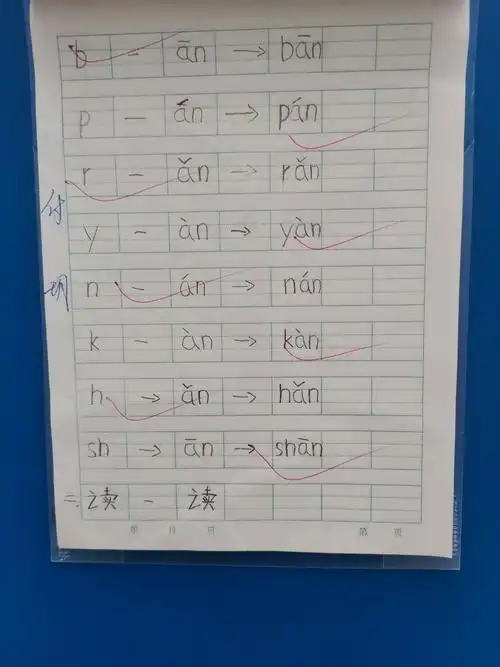 b - ān → bān
p — án → pán
r - ǎn → rǎn
y - àn → yàn
n - án → nán
k - àn → kàn
h → ǎn → hǎn
sh → ān → shān
二.读-读
年 月 日 第 页